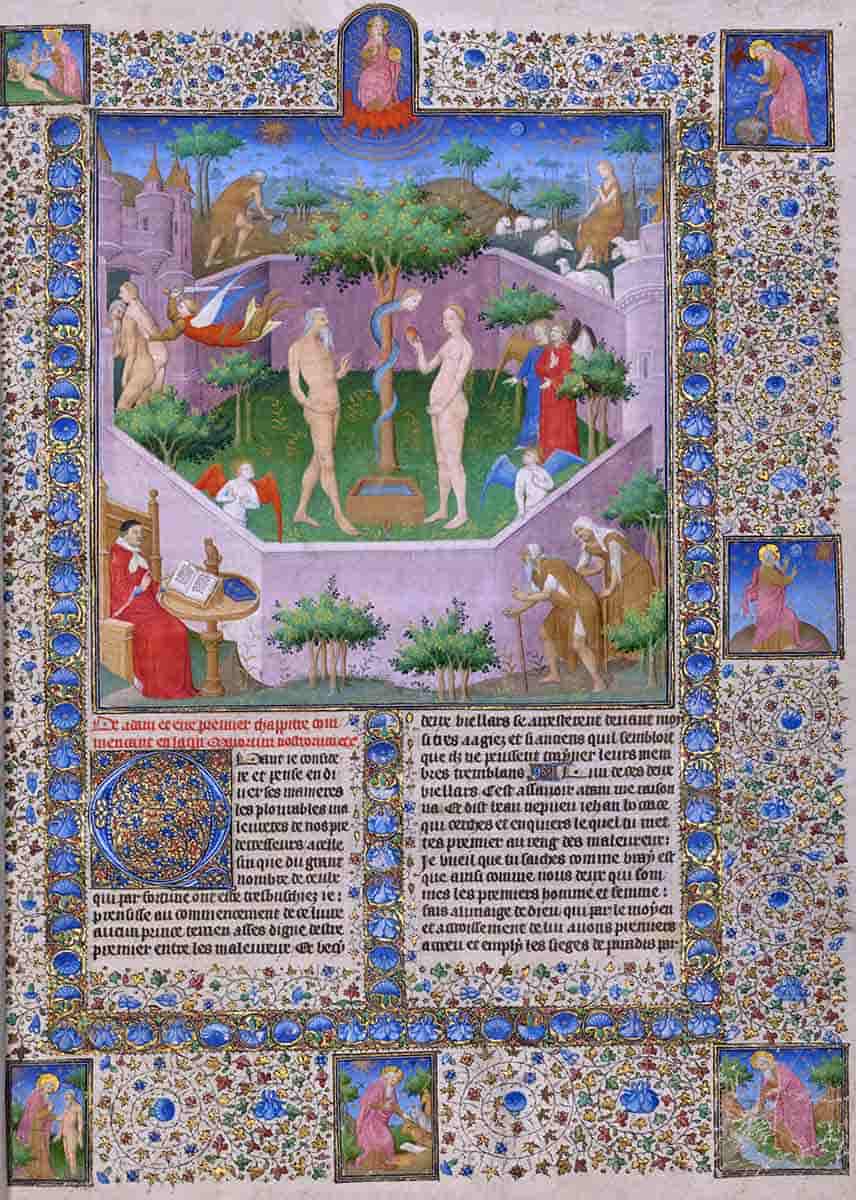 De adam et eue premier chappitre com
mencant en latin Maiorum nostrorum etc
Quant ie conside
re et pense en di
uerses manieres
les plourables ma
leuretes de nos pre
decesseurs acelle
fin que du grant
nombre de ceulx
qui par fortune ont este tresbuschiez ie
prensisse au commencement de ce liure
aucun prince terrien asses digne destre
premier entre les maleureux Et vecy
deux viellars se arresterent deuant moy
si tres aagiez et si anciens quil sembloit
que ilz ne peussent trayner leurs mem
bres tremblans Lun de ces deux
viellars Cest assauoir adam me raison
na Et dist beau nepueu iehan bocace
qui cerches et enquiers le quel tu met
tes premier au reng des maleureux:
Je vueil que tu saches comme vray est
que ainsi comme nous deux qui som
mes les premiers homme et femme:
fais alimaige de dieu, qui par le moyen
et de lui auons premiers
acreu et emply les sieges de paradis par